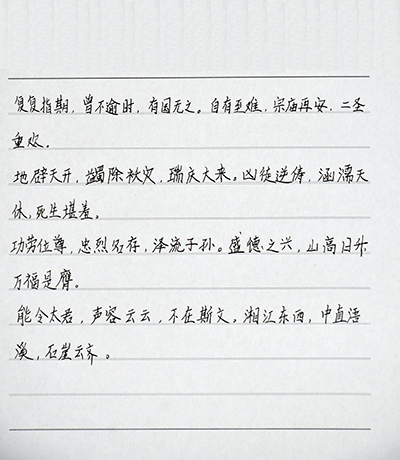 复复指期，曾不逾时，有国无之。自有至难，宗庙再安，二圣
重欢。
地辟天开，蠲除祅灾，瑞庆大来。凶徒逆俦，涵濡天
休，死生堪羞。
功劳位尊，忠烈名存，泽流子孙。盛德之兴，山高日升
万福是膺。
能令太君，声容云云，不在斯文。湘江东西，中直浯
溪，石崖云齐。